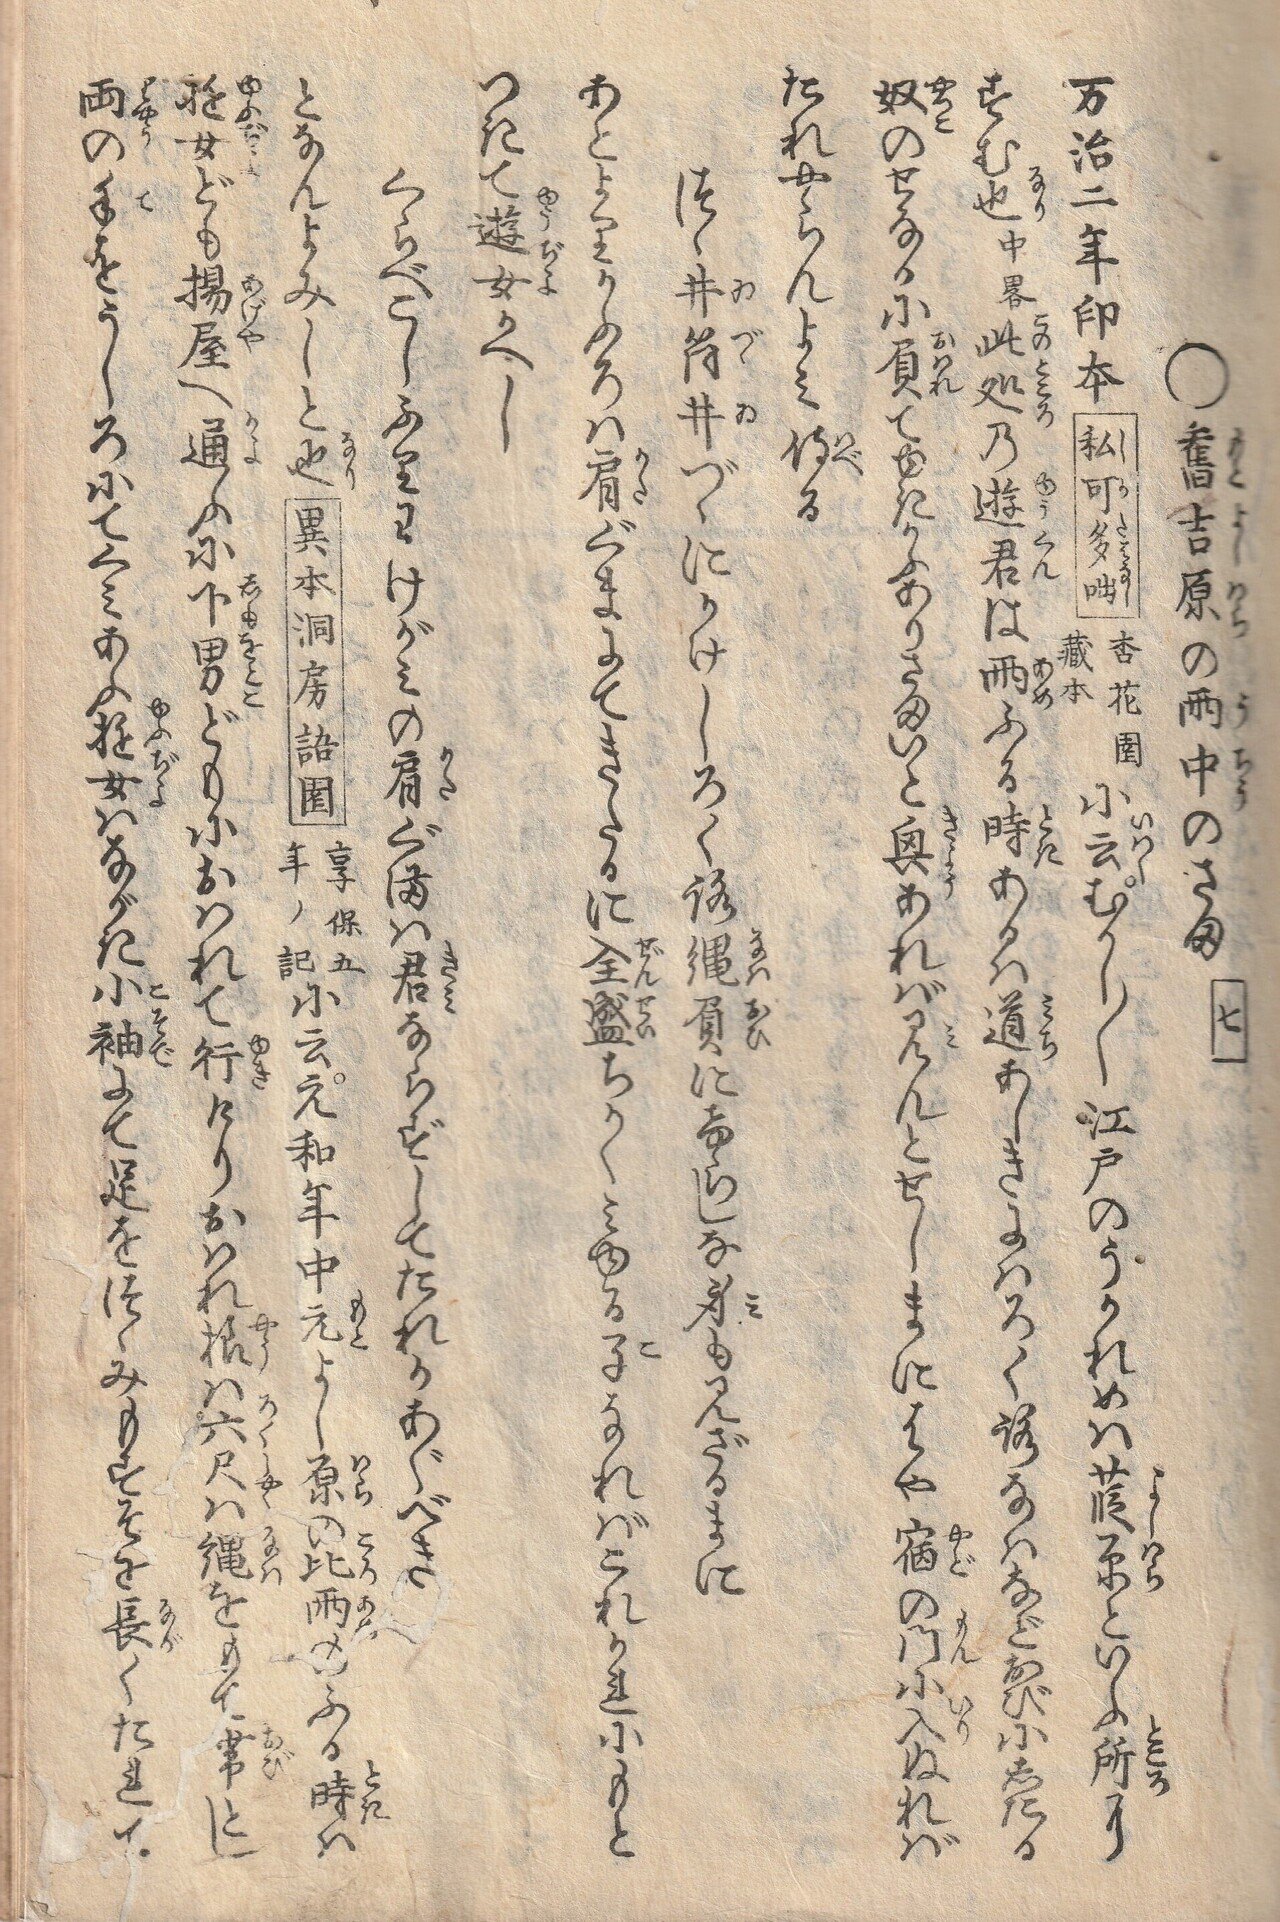 ◯舊吉原の雨中のさま 七
万治二年印本 私可多咄 杏花園蔵本 に云むかし〳〵江戸のうかれめハ葭原といふ所に
すむ也 中畧 此処乃遊君は雨ふる時あるハ道あしきにハろく諸なハなど帯にしたる
奴のせなかに負てゆきかふありさまいと興あればみんとせしまにはや宿の門に入ぬれば
たれやらんよみ侍る
つゝ井筒井づゝにかけしろく諸縄負にけらしな身もみざるまに
あとよりくるハ肩ぐまにてきたるに全盛ちかくみゆる子なればこれかれにもと
つきて遊女かへし
くらべこしふりわけがみの肩ぐまハ君ならずしてたれかあぐべき
となんよみしと也 異本洞房語園 享保五年ノ記 に云元和年中元よし原の比雨のふる時ハ
遊女ども揚屋へ通ふに下男どもにおハれて行けりおハれ様ハ六尺ハ縄をもて帯とし
両の手をうしろにてくみあふ遊女ハながき小袖にて足をつゝみもすそを長くたれて